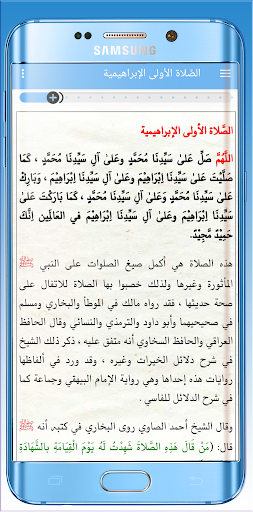 SAMSUNG
الصَّلاة الأولى الإبراهيمية
الصَّلاة الأولى الإبراهيمية
اللَّهُمَّ صَلِّ عَلىٰ سَيِّدِنَا مُحَمَّدٍ وعَلىٰ آلِ سَيِّدِنَا مُحَمَّدٍ ، كَمَا
صَلَّيْتَ عَلىٰ سَيِّدِنَا اِبْرَاهِيْمَ وَعَلىٰ آلِ سَيِّدِنَا اِبْرَاهِيْمَ ، وَبَارِكْ
عَلىٰ سَيِّدِنَا مُحَمَّدٍ وَعَلىٰ آلِ سَيِّدِنَا مُحَمَّدٍ ، كَمَا بَارَكْتَ عَلىٰ
سَيِّدِنَا اِبْرَاهِيْمَ وَعَلىٰ آلِ سَيِّدِنَا اِبْرَاهِيْمَ في العَالَمِينَ اِنَّكَ
حَمِيْدٌ مَّجِيْدٌ.
هذه الصلاة هي أكمل صيغ الصلوات على النبي ﷺ
المأثورة وغيرها ولذلك خصوا بها الصلاة للاتفال على
صحة حديثها ، فقد رواه مالك في الموطأ والبخاري ومسلم
في صحيحيهما وأبو داود والترمذي والنسائي وقال الحافظ
العراقي والحافظ السخاوي أنه متفق عليه ، ذكر ذلك الشيخ
في شرح دلائل الخيرات وغيره ، وقد ورد في ألفاظها
روايات هذه إحداها وهي رواية الإمام البيهقي وجماعة كما
في شرح الدلائل للفاسي.
وقال الشيخ أحمد الصاوي روى البخاري في كتبه أنه ﷺ
قال: (مَنْ قَالَ هَذِهِ الصَّلاةَ شَهِدْتُ لَهُ يَوْمَ الْقِيَامَةِ بِالشَّهَادَةِ